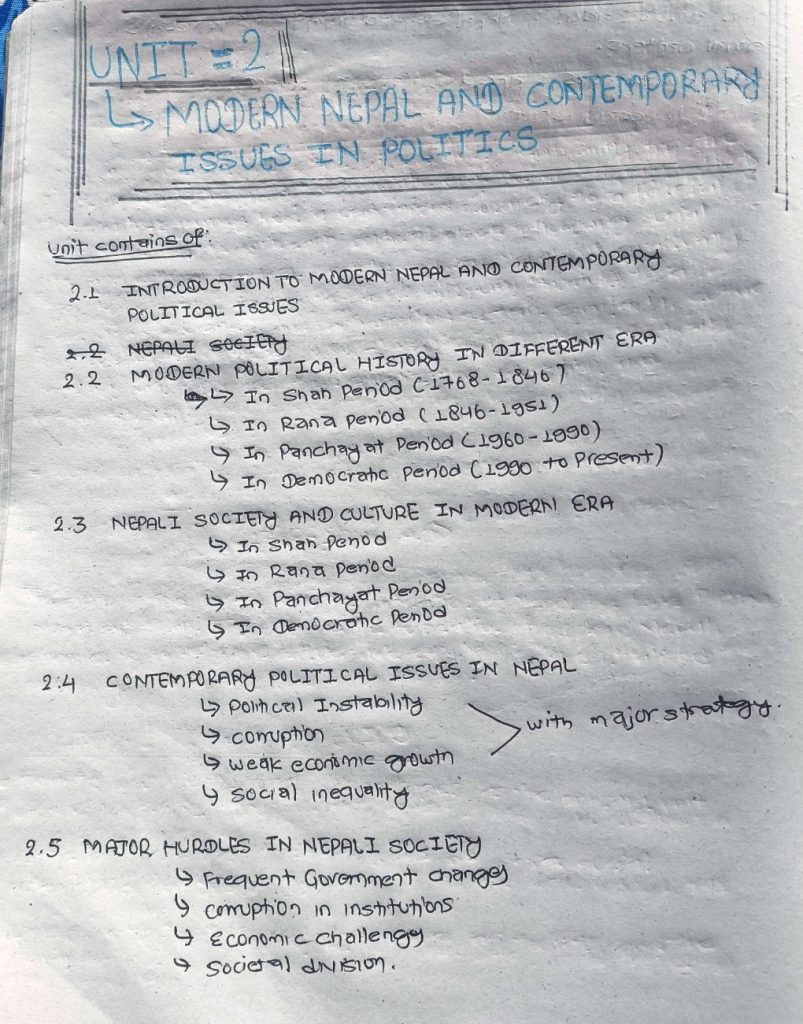 UNIT = 2
↳ MODERN NEPAL AND CONTEMPORARY
ISSUES IN POLITICS
unit contains of:
2.1 INTRODUCTION TO MODERN NEPAL AND CONTEMPORARY
POLITICAL ISSUES
2.2 NEPALI SOCIETY
2.2 MODERN POLITICAL HISTORY IN DIFFERENT ERA
↳ In Shah Period (1768-1846)
↳ In Rana Period (1846-1951)
↳ In Panchayat Period (1960-1990)
↳ In Democratic Period (1990 to Present)
2.3 NEPALI SOCIETY AND CULTURE IN MODERN ERA
↳ In Shah Period
↳ In Rana Period
↳ In Panchayat Period
↳ In Democratic Period
2.4 CONTEMPORARY POLITICAL ISSUES IN NEPAL
↳ Political Instability
↳ corruption
with major strategy.
↳ weak economic growth
↳ social inequality
2.5 MAJOR HURDLES IN NEPALI SOCIETY
↳ Frequent Government changes
↳ corruption in institutions
↳ Economic challenges
↳ Societal division.